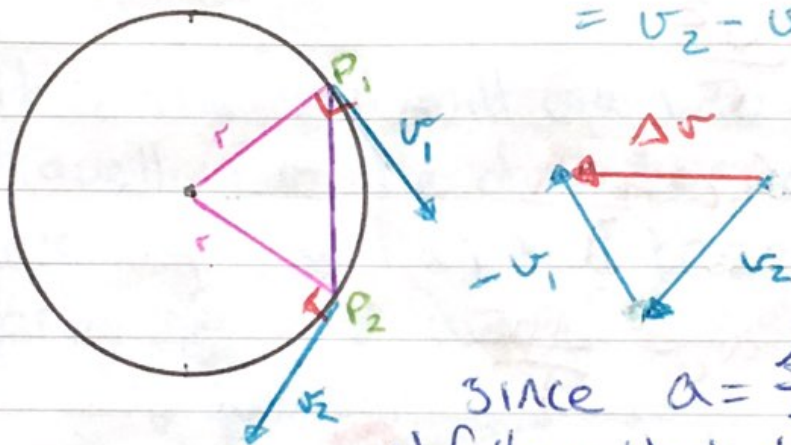 = v₂ - v
P₁
r
v₁
Δv
r
-v₁
v₂
P₂
v₂
since a =